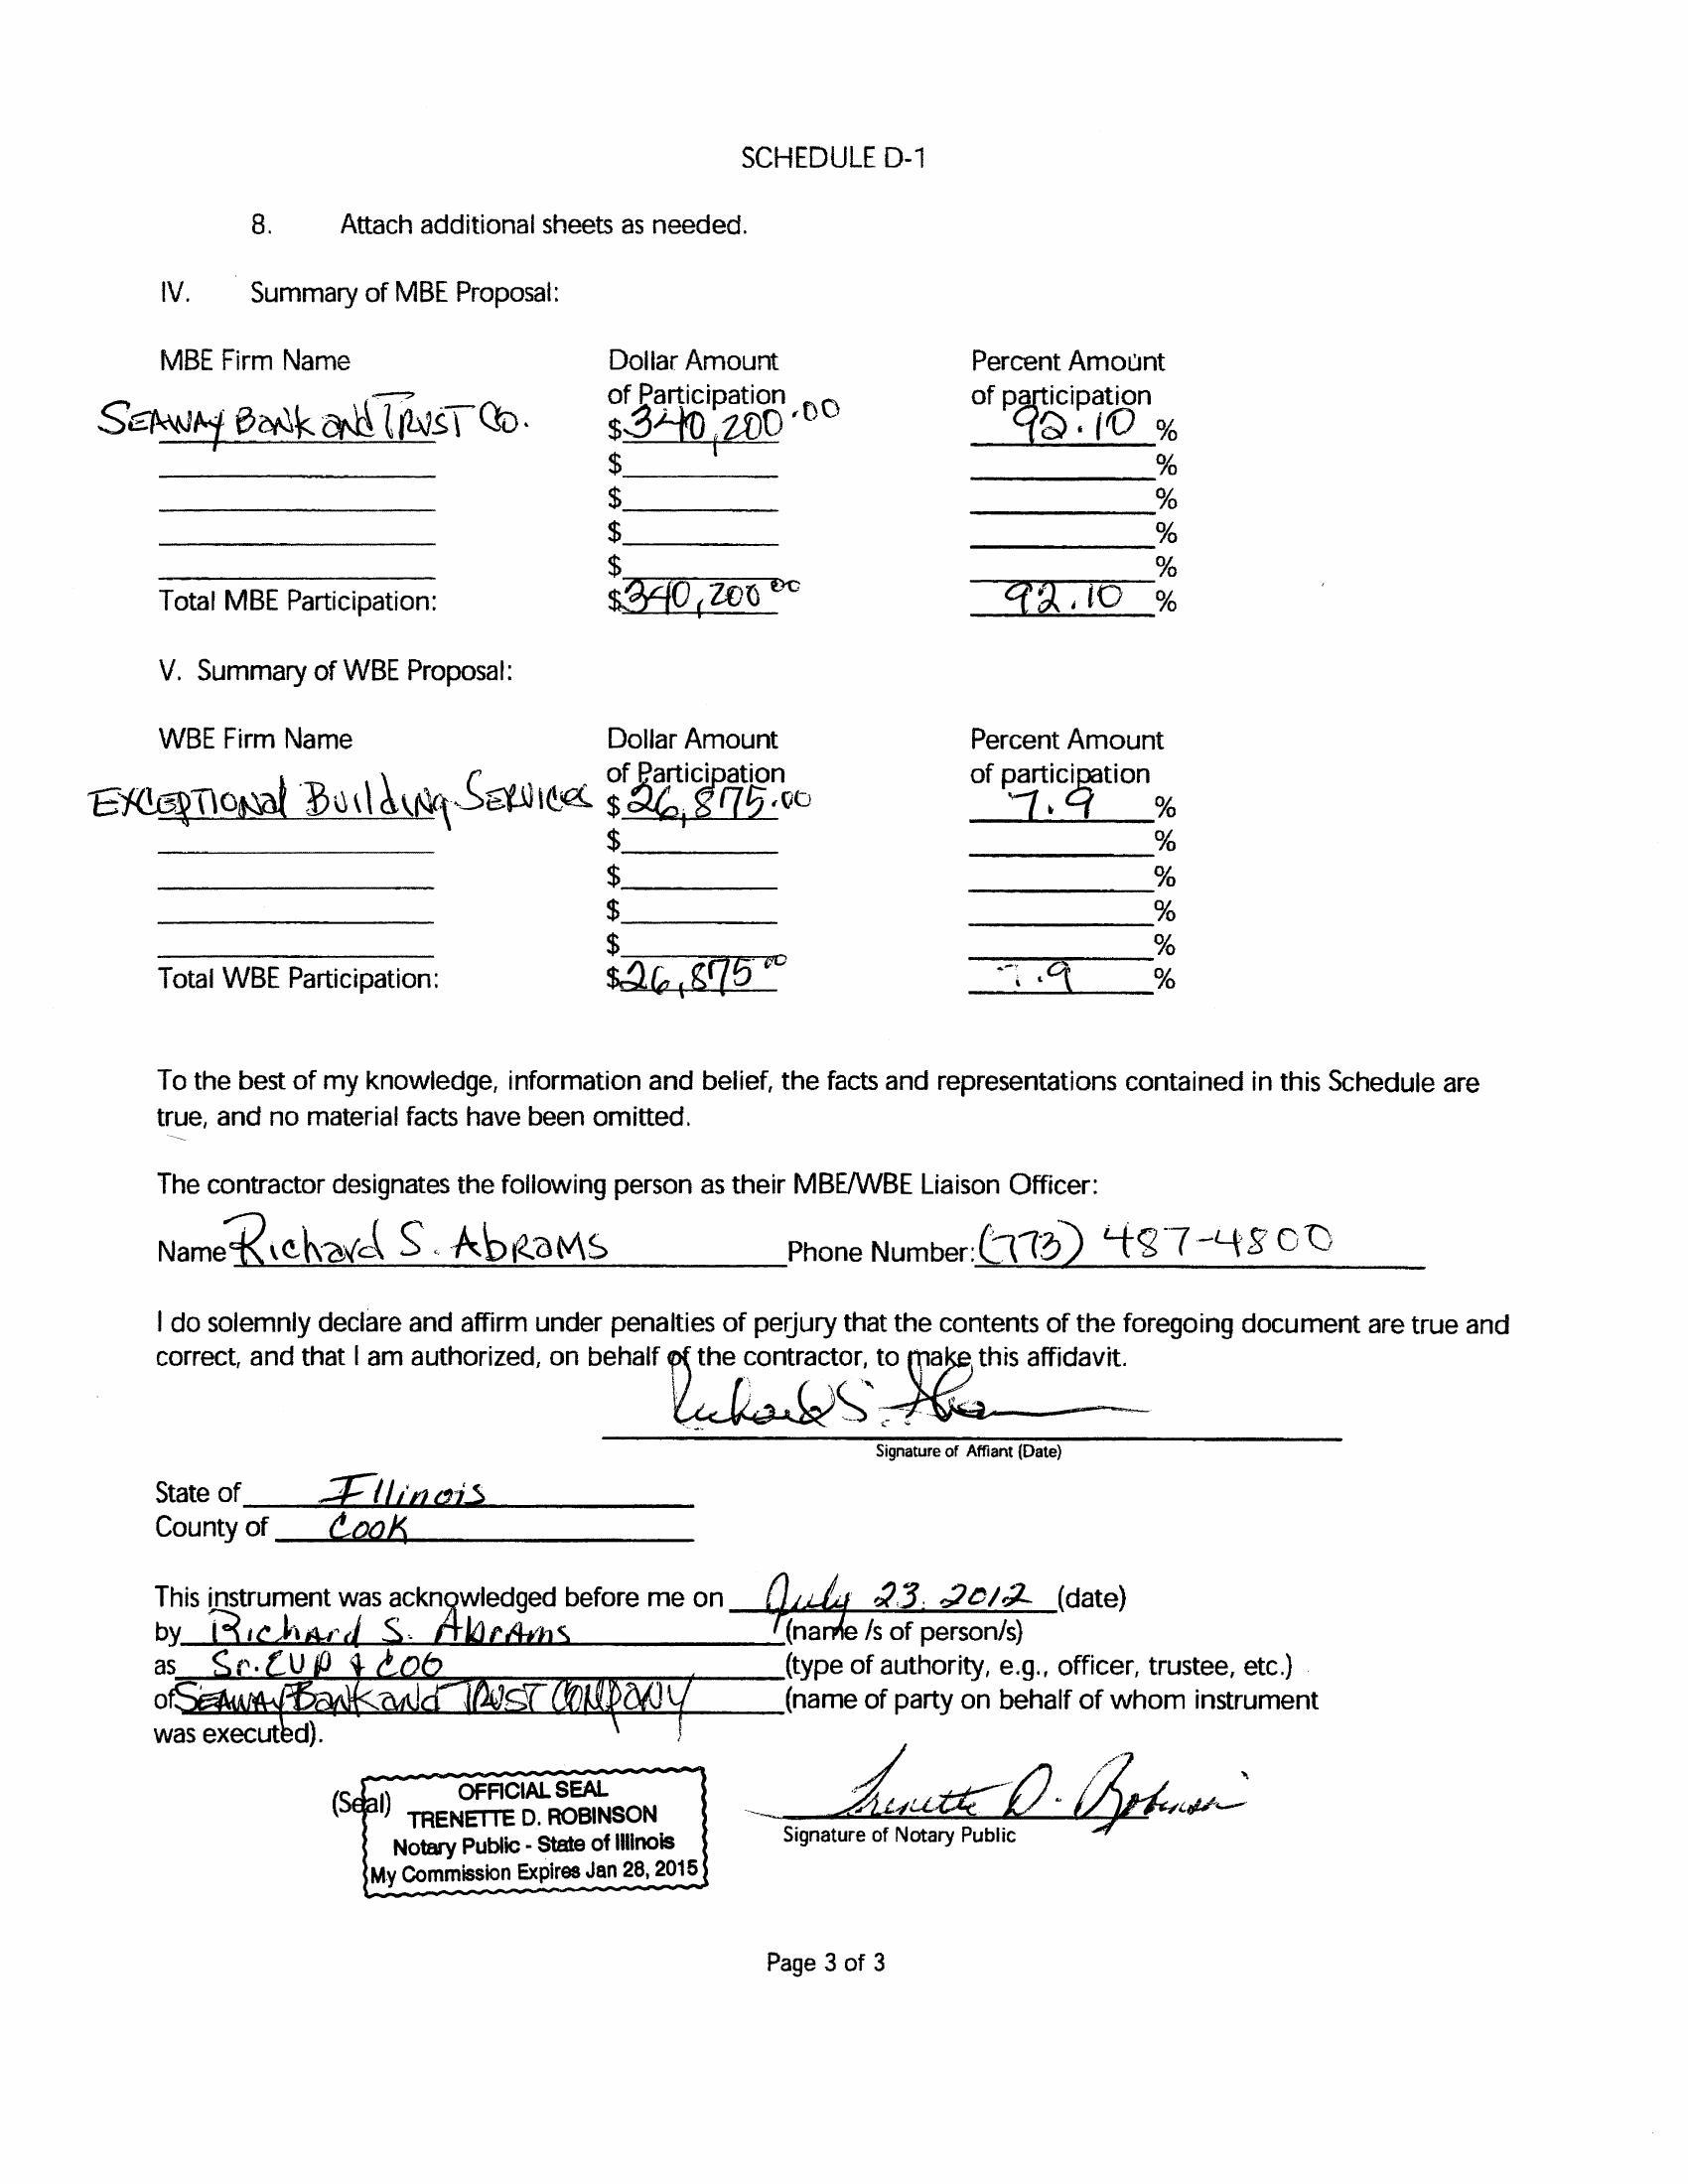 SCHEDULE D-1
8. Attach additional sheets as needed.
IV. Summary of MBE Proposal:
MBE Firm Name Dollar Amount of Participation Percent Amount of participation
SEAWAY Bank and TRUST Co. $340,200.00 92.10 %
$ %
$ %
$ %
$ %
Total MBE Participation: $340,200 00 92.10 %
V. Summary of WBE Proposal:
WBE Firm Name Dollar Amount of Participation Percent Amount of participation
EXCEPTIONAL Building SERVICES $26,875.00 7.9 %
$ %
$ %
$ %
$ %
Total WBE Participation: $26,875 00 7.9 %
To the best of my knowledge, information and belief, the facts and representations contained in this Schedule are
true, and no material facts have been omitted.
The contractor designates the following person as their MBE/WBE Liaison Officer:
Name Richard S. AbRaMS Phone Number: (773) 487-4800
I do solemnly declare and affirm under penalties of perjury that the contents of the foregoing document are true and
correct, and that I am authorized, on behalf of the contractor, to make this affidavit.
Richard S. Abrams
Signature of Affiant (Date)
State of Illinois
County of Cook
This instrument was acknowledged before me on July 23, 2012 (date)
by Richard S. Abrams (name /s of person/s)
as Sr. EVP & COO (type of authority, e.g., officer, trustee, etc.)
of SEAWAY Bank and TRUST COMPANY (name of party on behalf of whom instrument
was executed).
(Seal) OFFICIAL SEAL
TRENETTE D. ROBINSON
Notary Public - State of Illinois
My Commission Expires Jan 28, 2015
Trenette D. Robinson
Signature of Notary Public
Page 3 of 3